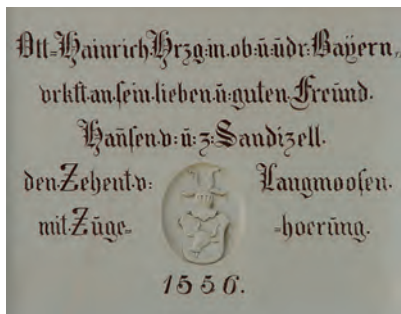 Ott=Hainrich Hrzg: in. ob: ū. ūdr: Bayern,,
vrkft. an. sein. lieben. ū. guten. Freūnd.
Hanſen. v: ū: z: Sandizell.
den Zehent. v: Langmooſen.
mit Zūge= =hoerūng.
1556.